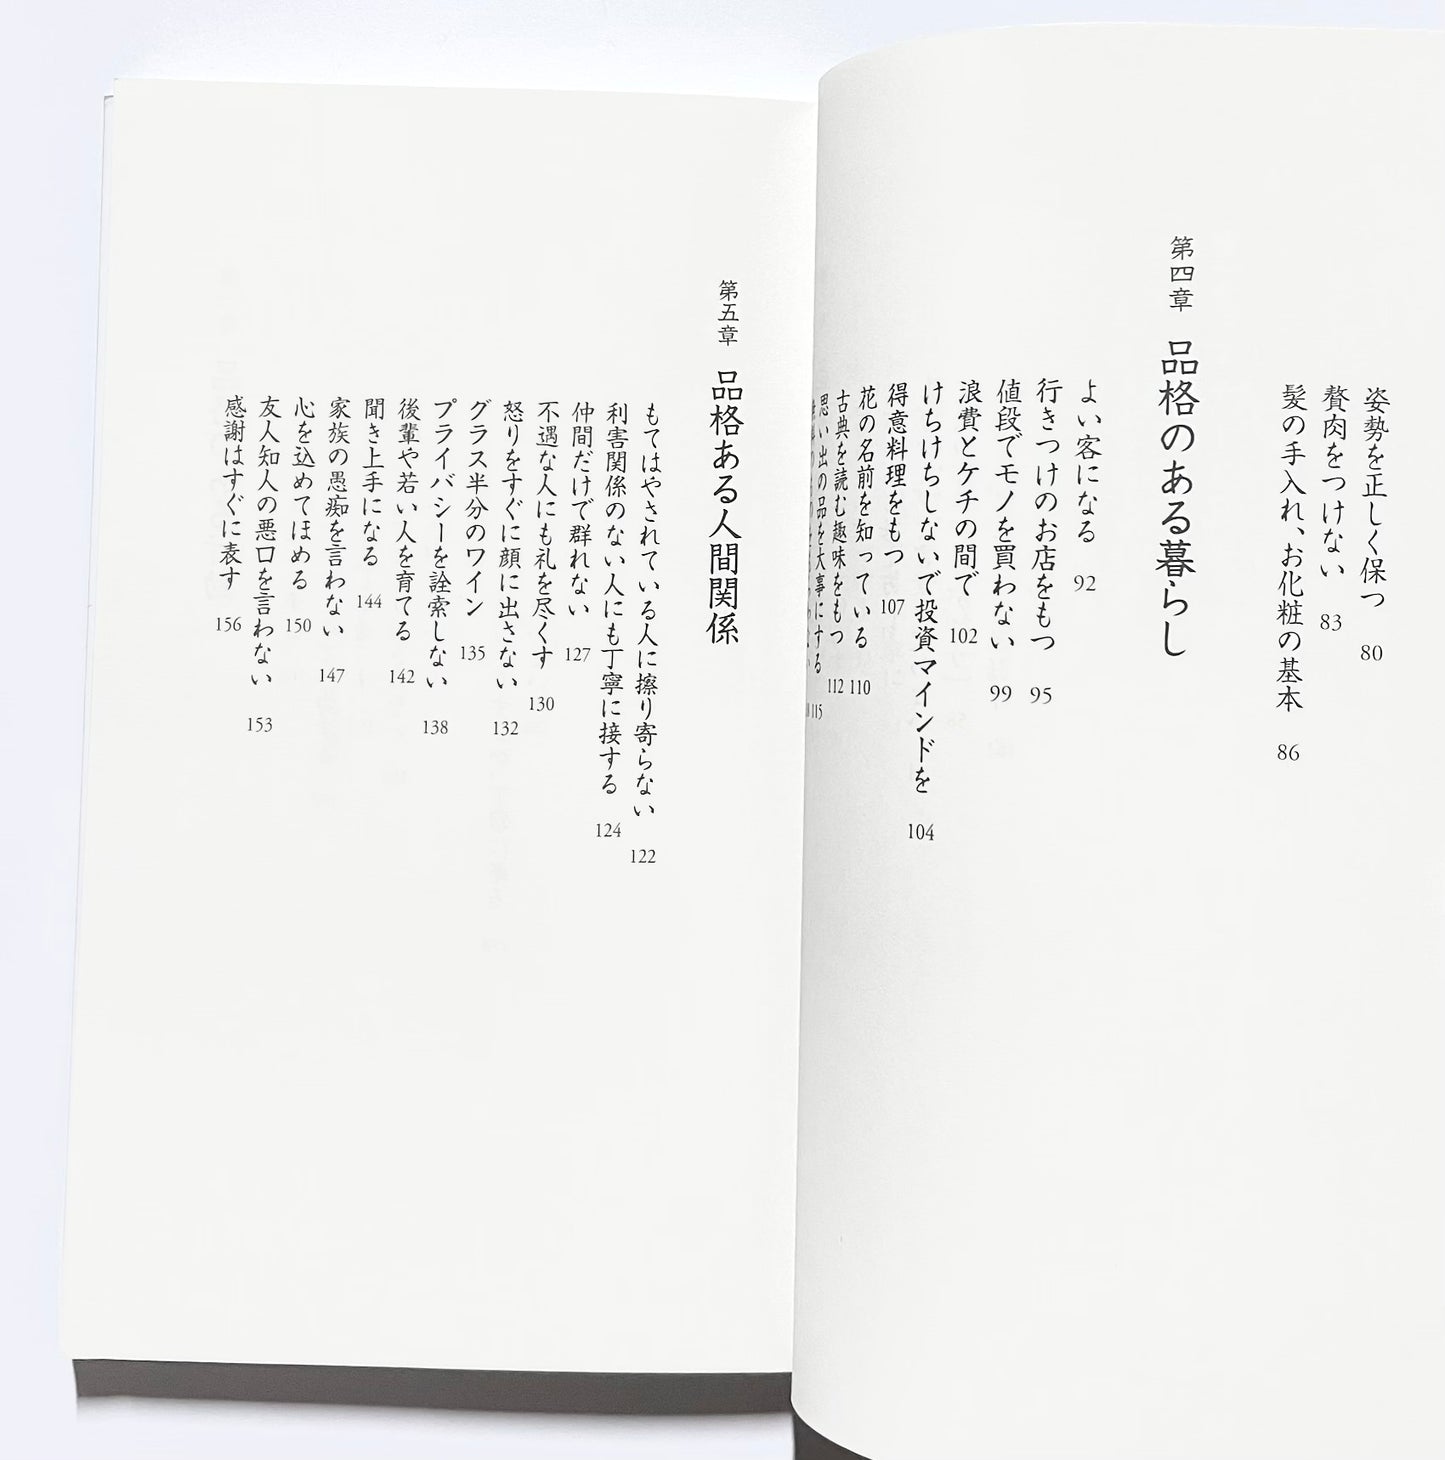 姿勢を正しく保つ 80
贅肉をつけない 83
髪の手入れ、お化粧の基本 86
第四章 品格のある暮らし
よい客になる 92
行きつけのお店をもつ 95
値段でモノを買わない 99
浪費とケチの間で 102
けちけちしないで投資マインドを 104
得意料理をもつ 107
花の名前を知っている 110
古典を読む趣味をもつ 112
思い出の品を大事にする 115
第五章 品格ある人間関係
もてはやされている人に擦り寄らない 122
利害関係のない人にも丁寧に接する 124
仲間だけで群れない 127
不遇な人にも礼を尽くす 130
怒りをすぐに顔に出さない 132
グラス半分のワイン 135
プライバシーを詮索しない 138
後輩や若い人を育てる 142
聞き上手になる 144
家族の愚痴を言わない 147
心を込めてほめる 150
友人知人の悪口を言わない 153
感謝はすぐに表す 156